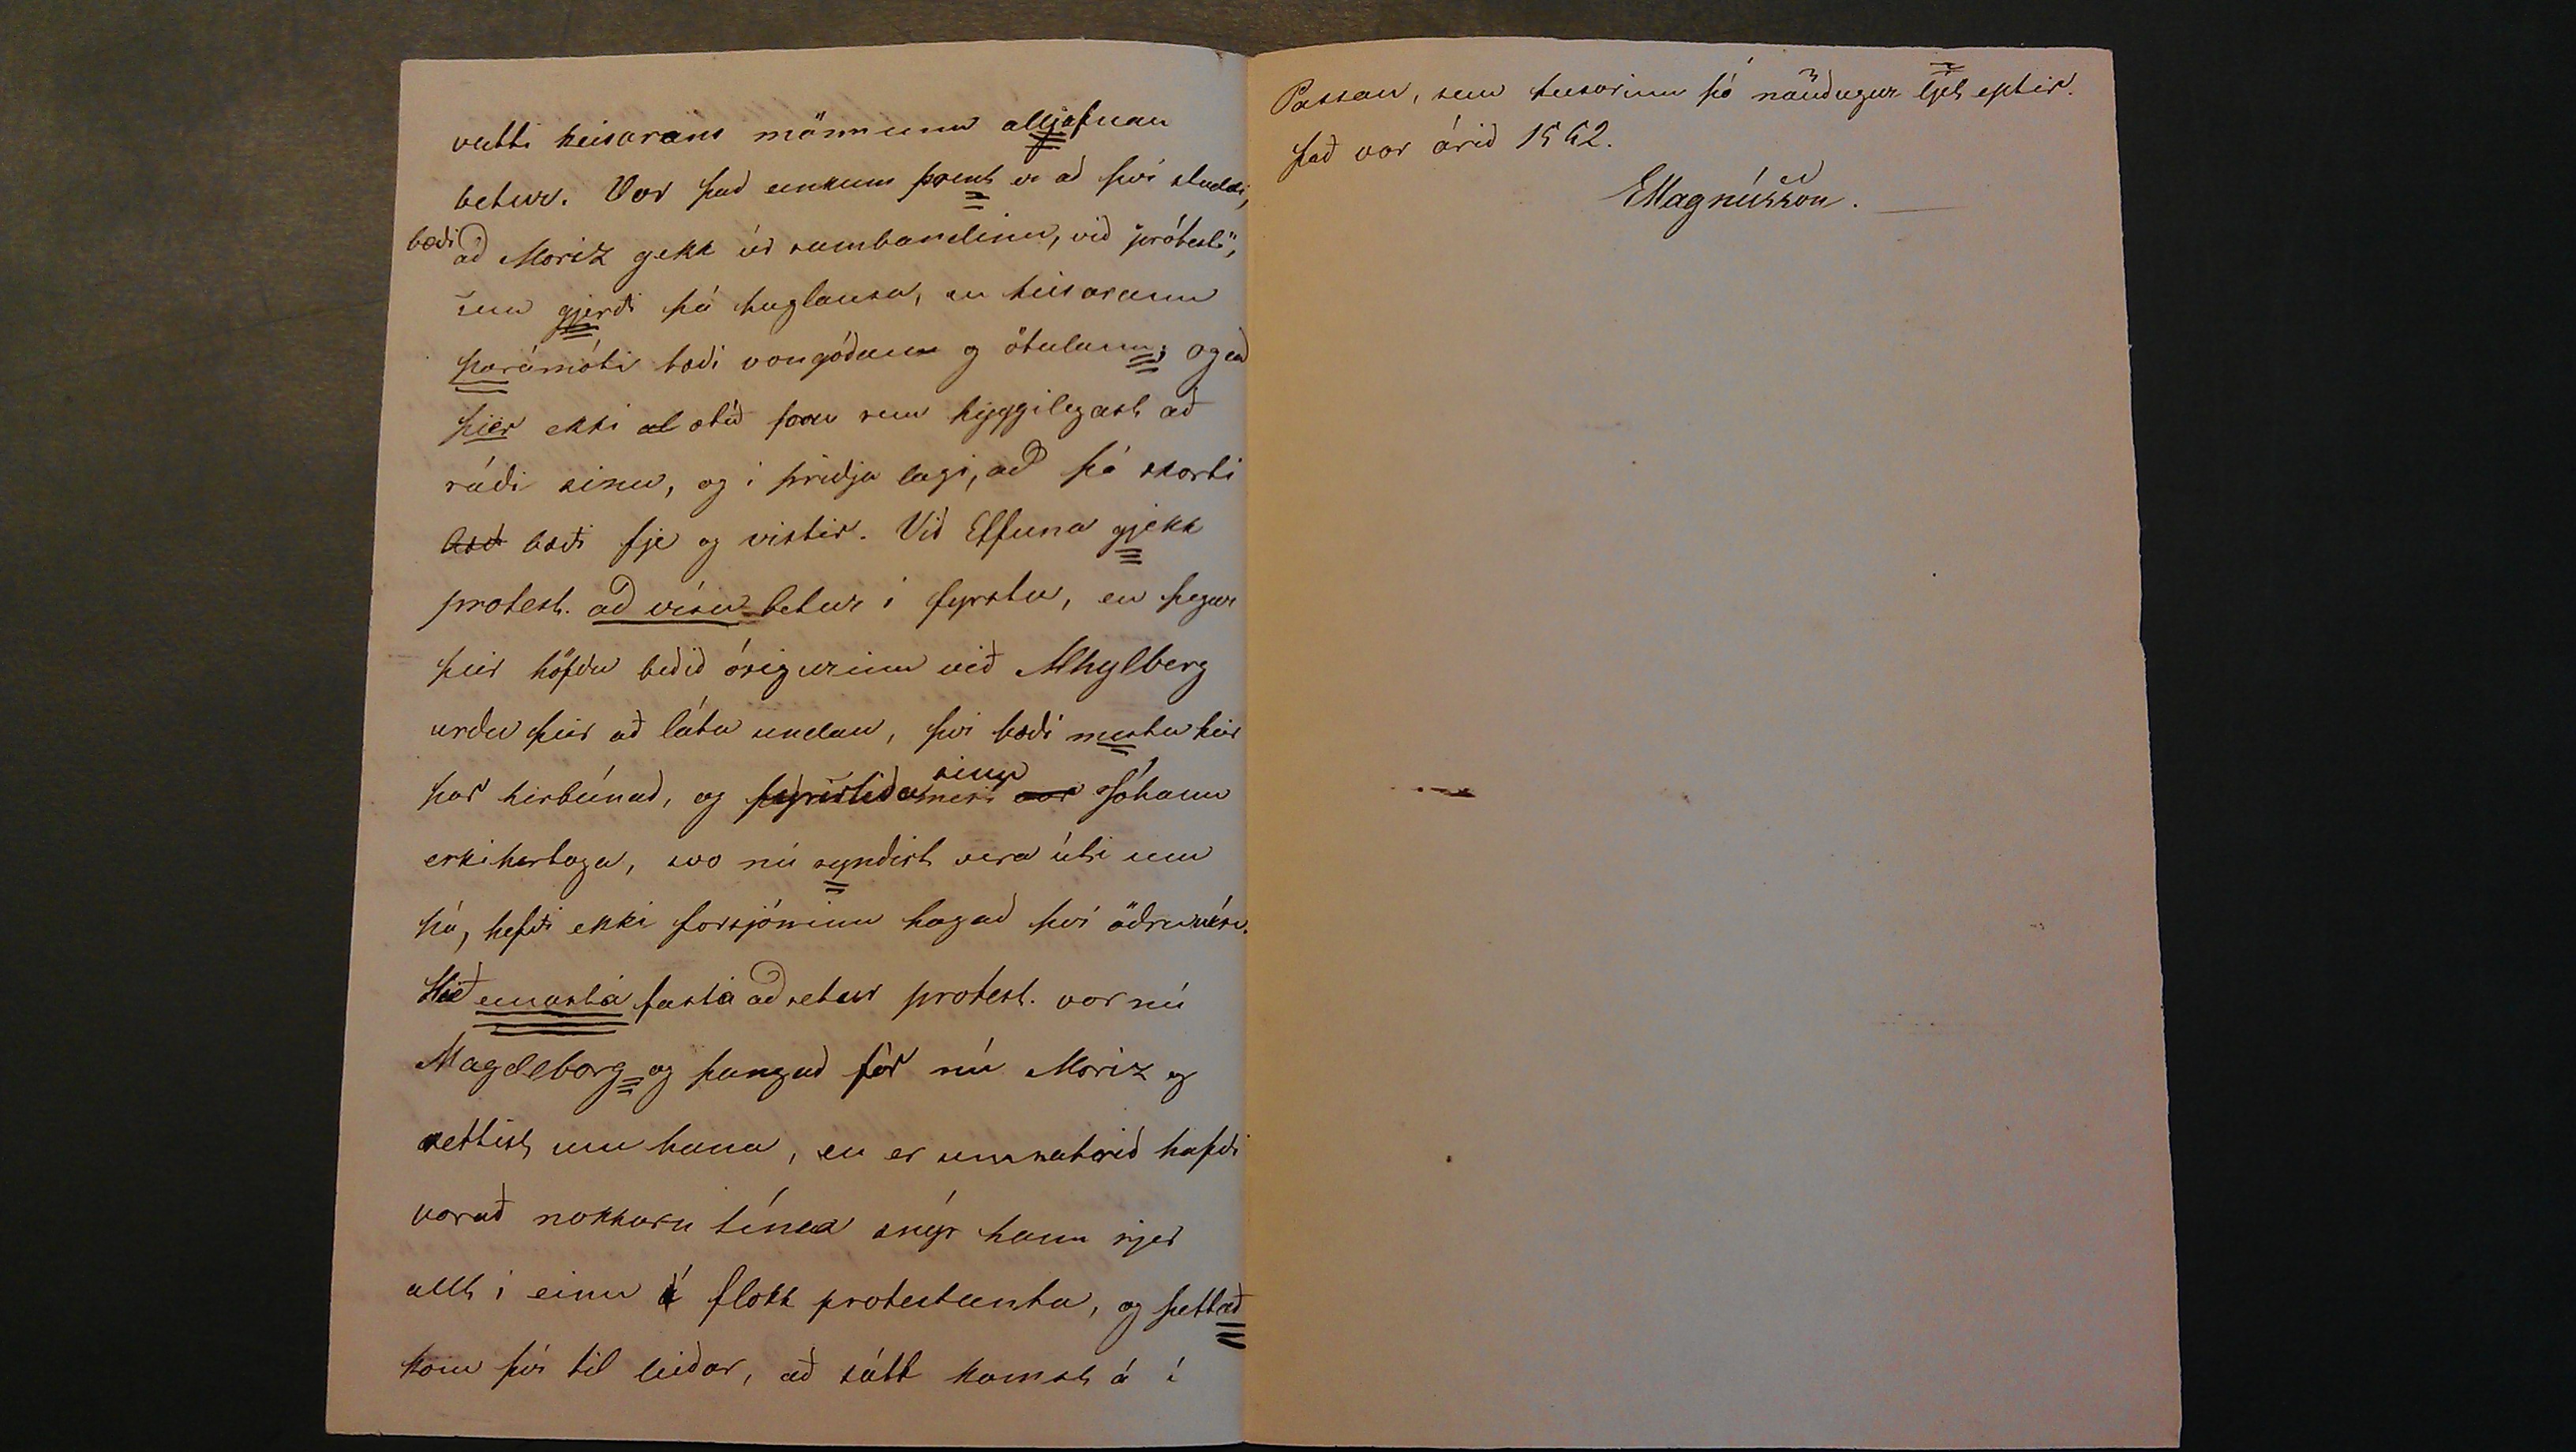 veitti keisarans mönnum alljafnan
betur. Var það einkum þrent er að því studdi,
bæði að Moriz gekk úr sambandinu, við "prótest",
sem gjerði þá huglausa, en keisarann
þarámóti bæði vongóðann og ötulann; og að
þeir ekki al ætíð fóru sem hyggilegast að
ráði sínu, og í þriðja lagi, að þá skorti
bæði fje og vistir. Við Elfuna gjekk
protest. að vísu betur í fyrstu, en þegar
þeir höfðu beðið ósigurinn við Mhylberg
urðu þeir að láta undan, því bæði mistu þeir
þar herbúnað, og sinn Jóhann
erkihertoga, svo nú syndist vera úti um
þá, hefði ekki forsjóninn hagað því öðruvísi.
Hið einasta fasta aðsetur protest. var nú
Magdeborg og þangað fór nú Moriz og
settist um hana, en er umsatrið hafði
varað nokkurn tíma snýr hann sjer
allt í einu á flokk protestanta, og þettað
kom því til leiðar, að sátt komst á í
Passau, sem keisarinn þó nauðugur ljet eptir.
Það var árið 1552.
EMagnússon.